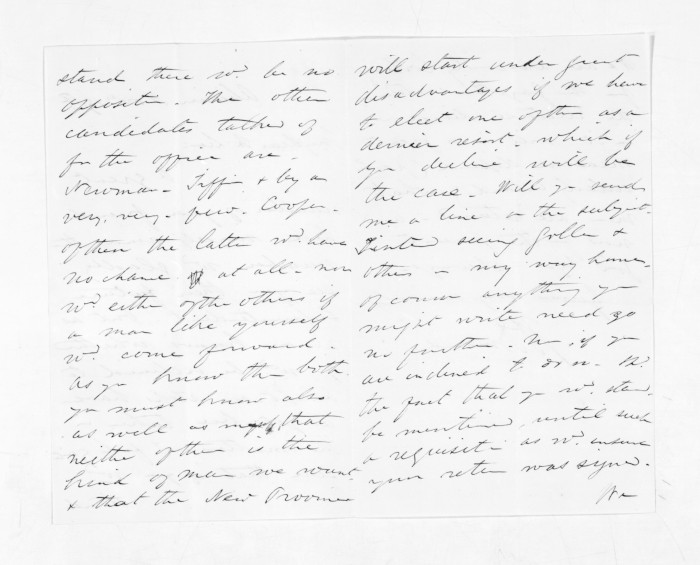 stand there wd. be no
opposition. The other
candidates talked of
for the office are -
Newman - Tiffin & by a
very, very - few. Cooper -
of them the latter wd. have
no chance at all - nor
wd. either of the others if
a man like yourself
wd. come forward.
As you know them both
you must know also
as well as myself that
neither of them is the
kind of man we want
& that the New Province
will start under great
disadvantages if we have
to elect one of them as a
dernier resort - which if
you decline will be
the case - Will you send
me a line on the subject.
I intend seeing Golder &
others on my way home -
of course anything you
might write need go
no further - Nor, if you
are inclined to do so
the fact that you wd. stand
be mentioned until such
a requisition as wd. ensure
your return was signed.
We